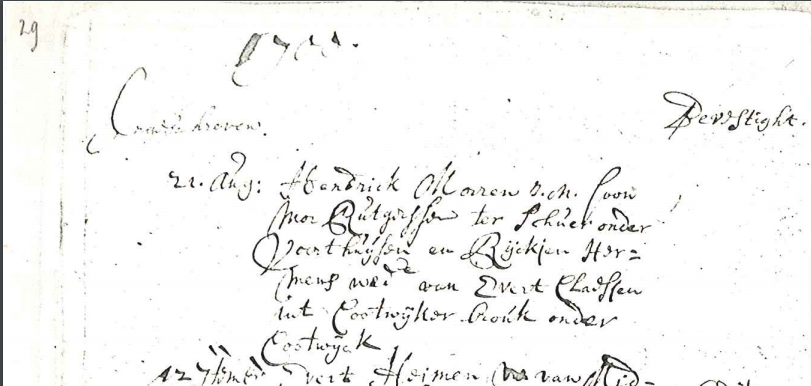 29
1700.
Ingeschreven. Bevestight.
21. Aug: Hendrick Morren J.M. soon
Mor Rutgerssen ter Schuer onder
Voorthuijsen en Rijckjen Her=
mens wed.e van Evert Claessen
int Cootwijker brouk onder
Cootwijck
12 7temb: Evert Heimen van